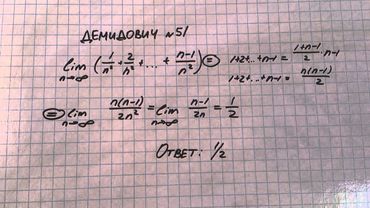 ДЕМИДОВИЧ №51
lim n→∞ (1/n² + 2/n² + ... + n-1/n²) =
1+2+...+n-1 = 1+n-1/2 · n-1
1+2+...+n-1 = n(n-1)/2
= lim n→∞ n(n-1)/2n² = lim n→∞ n-1/2n = 1/2
ОТВЕТ: 1/2